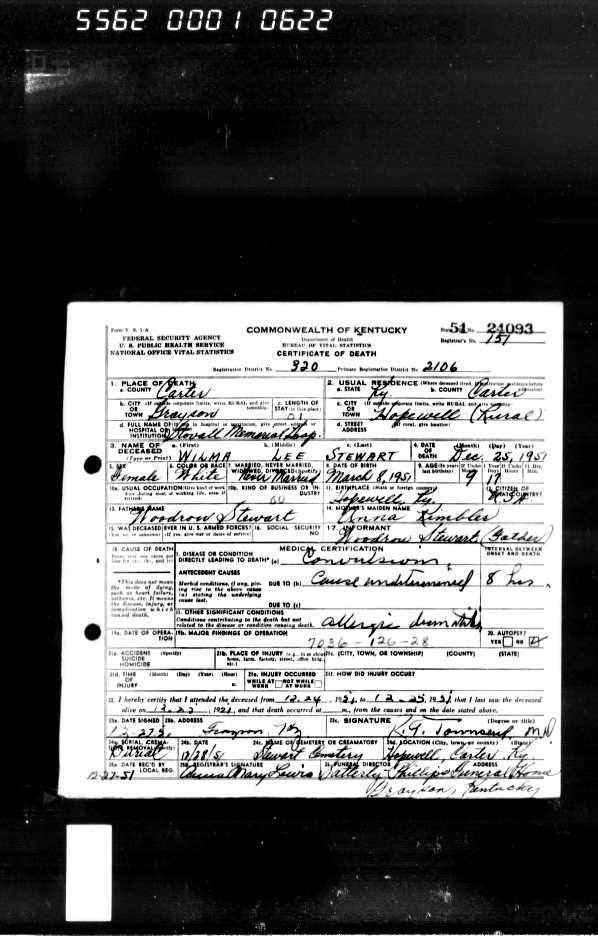 5562 0001 0622
Form V. S. 1-A COMMONWEALTH OF KENTUCKY State File No. 51 24093
FEDERAL SECURITY AGENCY Department of Health Registrar's No. 151
U. S. PUBLIC HEALTH SERVICE BUREAU OF VITAL STATISTICS
NATIONAL OFFICE VITAL STATISTICS CERTIFICATE OF DEATH
Registration District No. 320 Primary Registration District No. 2106
1. PLACE OF DEATH 2. USUAL RESIDENCE (Where deceased lived, if institution: residence before admission)
a. COUNTY Carter a. STATE Ky b. COUNTY Carter
b. CITY OR TOWN Grayson c. LENGTH OF STAY (in this place) 01 c. CITY OR TOWN Hopewell (Rural)
d. FULL NAME OF HOSPITAL OR INSTITUTION Stovall Memorial Hosp. d. STREET ADDRESS (If rural, give location)
3. NAME OF DECEASED (Type or Print) a. (First) WILMA b. (Middle) LEE c. (Last) STEWART 4. DATE OF DEATH (Month) (Day) (Year) Dec. 25, 1951
5. SEX Female 6. COLOR OR RACE White 7. MARRIED, NEVER MARRIED, WIDOWED, DIVORCED (Specify) Never Married 8. DATE OF BIRTH March 8, 1951 9. AGE 9 17
10a. USUAL OCCUPATION 10b. KIND OF BUSINESS OR INDUSTRY 11. BIRTHPLACE (State or foreign country) Hopewell Ky. 12. CITIZEN OF WHAT COUNTRY? USA
13. FATHER'S NAME Woodrow Stewart 14. MOTHER'S MAIDEN NAME Anna Kimbler
15. WAS DECEASED EVER IN U. S. ARMED FORCES? 16. SOCIAL SECURITY NO 17. INFORMANT Woodrow Stewart (Father)
18. CAUSE OF DEATH MEDICAL CERTIFICATION INTERVAL BETWEEN ONSET AND DEATH
I. DISEASE OR CONDITION DIRECTLY LEADING TO DEATH* (a) Convulsions
ANTECEDENT CAUSES
Morbid conditions, if any, giving rise to the above cause (a) stating the underlying cause last. DUE TO (b) Cause undetermined 8 hrs
DUE TO (c)
*This does not mean the mode of dying, such as heart failure, asthenia, etc. It means the disease, injury, or complication which caused death.
II. OTHER SIGNIFICANT CONDITIONS
Conditions contributing to the death but not related to the disease or condition causing death. allergic
19a. DATE OF OPERATION 19b. MAJOR FINDINGS OF OPERATION 7036-126-28 20. AUTOPSY? YES NO
21a. ACCIDENT SUICIDE HOMICIDE (Specify) 21b. PLACE OF INJURY 21c. (CITY, TOWN, OR TOWNSHIP) (COUNTY) (STATE)
21d. TIME OF INJURY (Month) (Day) (Year) (Hour) 21e. INJURY OCCURRED WHILE AT WORK NOT WHILE AT WORK 21f. HOW DID INJURY OCCUR?
22. I hereby certify that I attended the deceased from 12-24, 1951, to 12-25, 1951 that I last saw the deceased
alive on, 1951, and that death occurred at m., from the causes and on the date stated above.
23a. DATE SIGNED 23b. ADDRESS Grayson, Ky 23c. SIGNATURE Townsend MD (Degree or title)
24a. BURIAL, CREMATION, REMOVAL Burial 24b. DATE 12/28/51 24c. NAME OF CEMETERY OR CREMATORY Stewart Cemetery 24d. LOCATION (City, town, or county) (State) Hopewell, Carter, Ky
25a. DATE REC'D BY LOCAL REG. 12-27-51 25b. REGISTRAR'S SIGNATURE Mary Lewis 26. FUNERAL DIRECTOR ADDRESS Phillips Funeral Home
Grayson, Kentucky